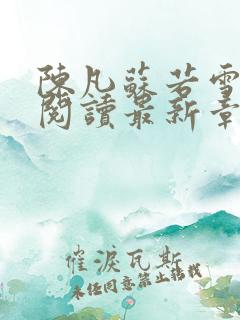 陳凡蘇若雪
閱讀最新章
催淚瓦斯
未經同意禁止轉載